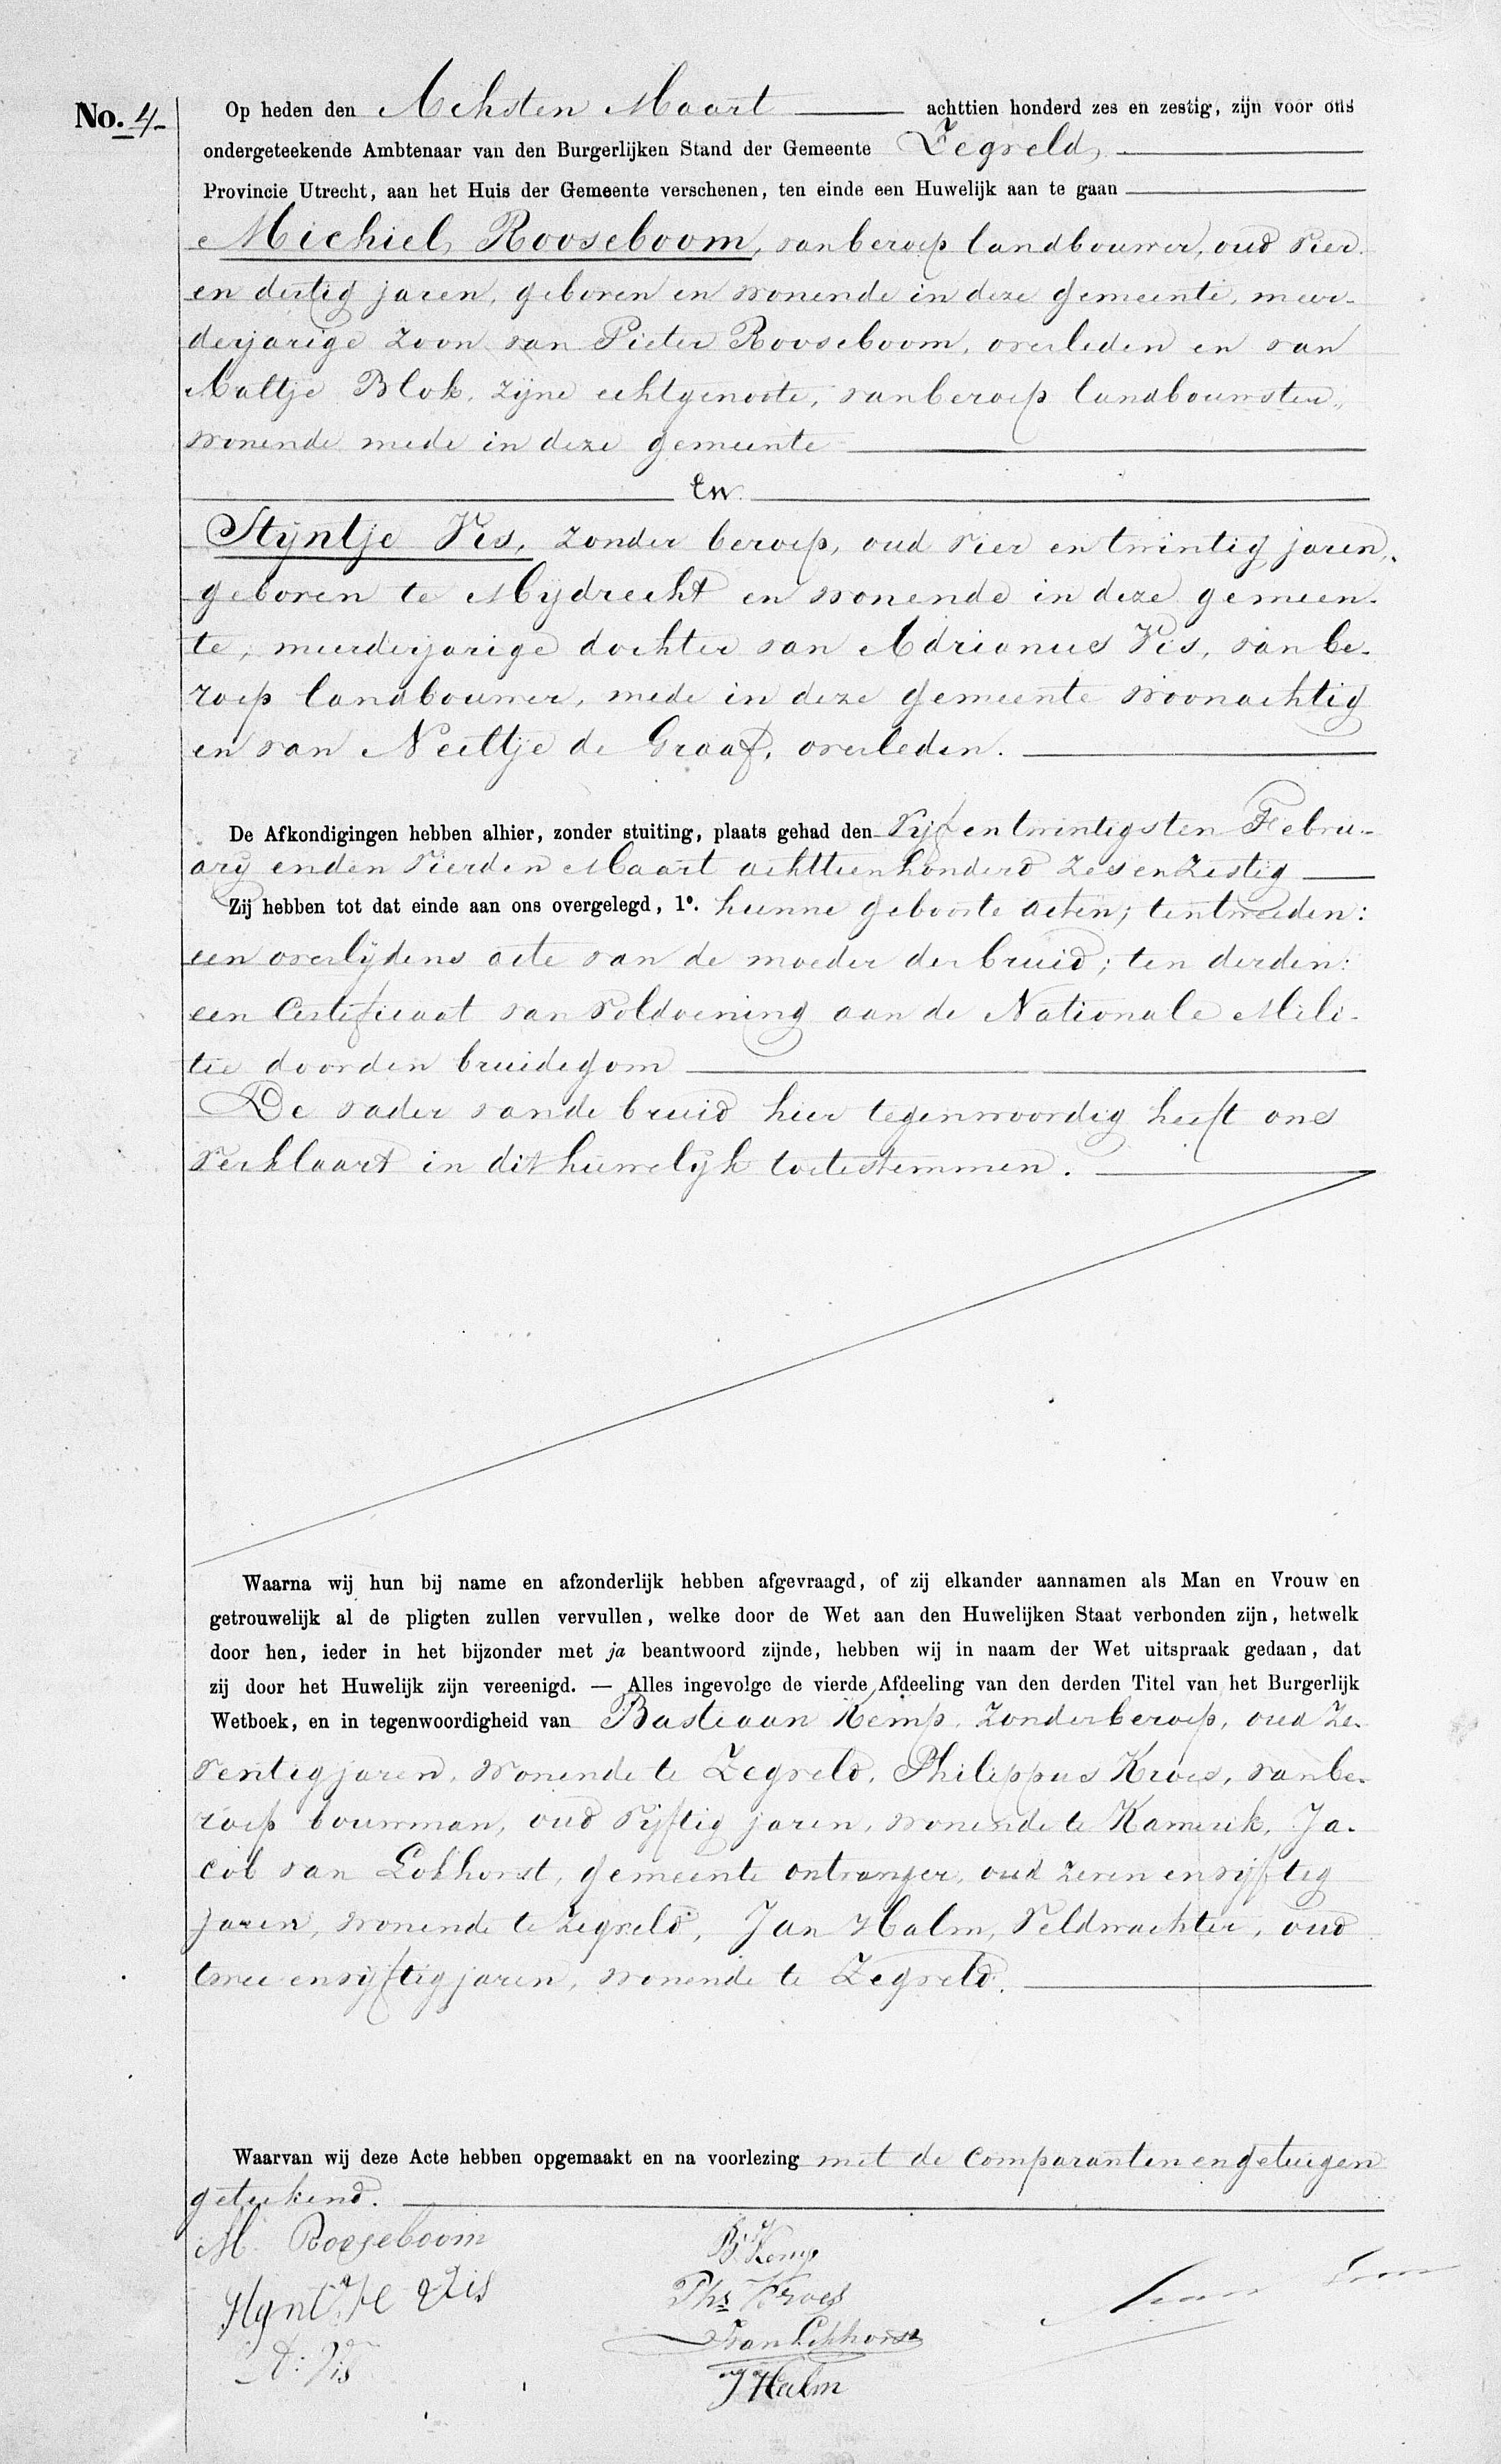 No. 4.
Op heden den Achsten Maart achttien honderd zes en zestig, zijn voor ons
ondergeteekende Ambtenaar van den Burgerlijken Stand der Gemeente Zegveld,
Provincie Utrecht, aan het Huis der Gemeente verschenen, ten einde een Huwelijk aan te gaan
Michiel Rooseboom, van beroep landbouwer, oud vier
en dertig jaren, geboren en wonende in deze gemeente, meer-
derjarige zoon van Pieter Rooseboom, overleden en van
Aaltje Blok, zijne echtgenoote, van beroep landbouwster,
wonende mede in deze gemeente
En
Stijntje Vis, zonder beroep, oud vier en twintig jaren,
geboren te Mijdrecht en wonende in deze gemeen-
te, meerderjarige dochter van Adrianus Vis, van be-
roep landbouwer, mede in deze gemeente woonachtig
en van Neeltje de Graaf, overleden.
De Afkondigingen hebben alhier, zonder stuiting, plaats gehad den vijf en twintigsten Febru-
arij en den vierden Maart achttienhonderd zes en zestig
Zij hebben tot dat einde aan ons overgelegd, 1º. hunne geboorte acten; ten tweeden:
een overlijdens acte van de moeder der bruid; ten derden:
een Certificaat van voldoening aan de Nationale Mili-
tie door den bruidegom
De vader van de bruid hier tegenwoordig heeft ons
verklaart in dit huwelijk toetestemmen.
Waarna wij hun bij name en afzonderlijk hebben afgevraagd, of zij elkander aannamen als Man en Vrouw en
getrouwelijk al de pligten zullen vervullen, welke door de Wet aan den Huwelijken Staat verbonden zijn, hetwelk
door hen, ieder in het bijzonder met ja beantwoord zijnde, hebben wij in naam der Wet uitspraak gedaan, dat
zij door het Huwelijk zijn vereenigd. — Alles ingevolge de vierde Afdeeling van den derden Titel van het Burgerlijk
Wetboek, en in tegenwoordigheid van Bastiaan Kemp, zonder beroep, oud ze-
ventig jaren, wonende te Zegveld, Philippus Kroes, van be-
roep bouwman, oud vijftig jaren, wonende te Kamerik, Ja-
cob van Lokhorst, gemeente ontvanger, oud zeven en vijftig
jaren, wonende te Zegveld, Jan Halm, Veldwachter, oud
twee en vijftig jaren, wonende te Zegveld.
Waarvan wij deze Acte hebben opgemaakt en na voorlezing met de comparanten en getuigen
geteekend.
M. Rooseboom
B. Kemp
Stynt je Vis
Phs Kroes
J van Lokhorst
A: Vis
J Halm